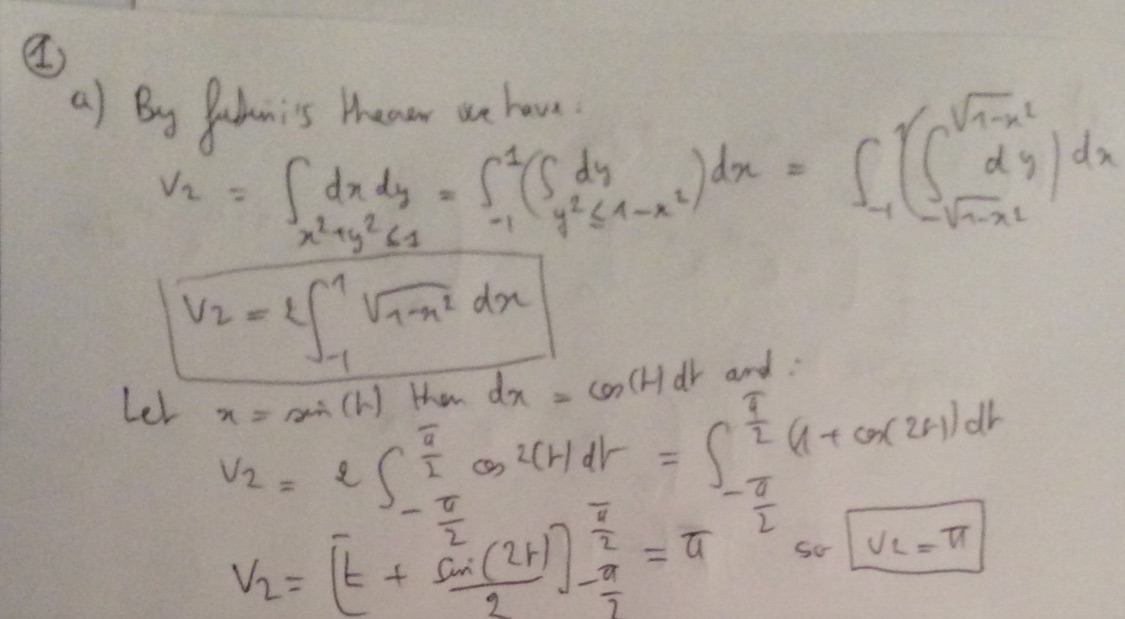 ①
a) By fubini's theorem we have:
V2 = ∫_{x²+y²≤1} dx dy = ∫_{-1}^{1} (∫_{y²≤1-x²} dy) dx = ∫_{-1}^{1} (∫_{-√1-x²}^{√1-x²} dy) dx
V2 = 2 ∫_{-1}^{1} √1-x² dx
Let x = sin(t) then dx = cos(t) dt and:
V2 = 2 ∫_{-π/2}^{π/2} cos²(t) dt = ∫_{-π/2}^{π/2} (1 + cos(2t)) dt
V2 = [t + sin(2t)/2]_{-π/2}^{π/2} = π so V2 = π